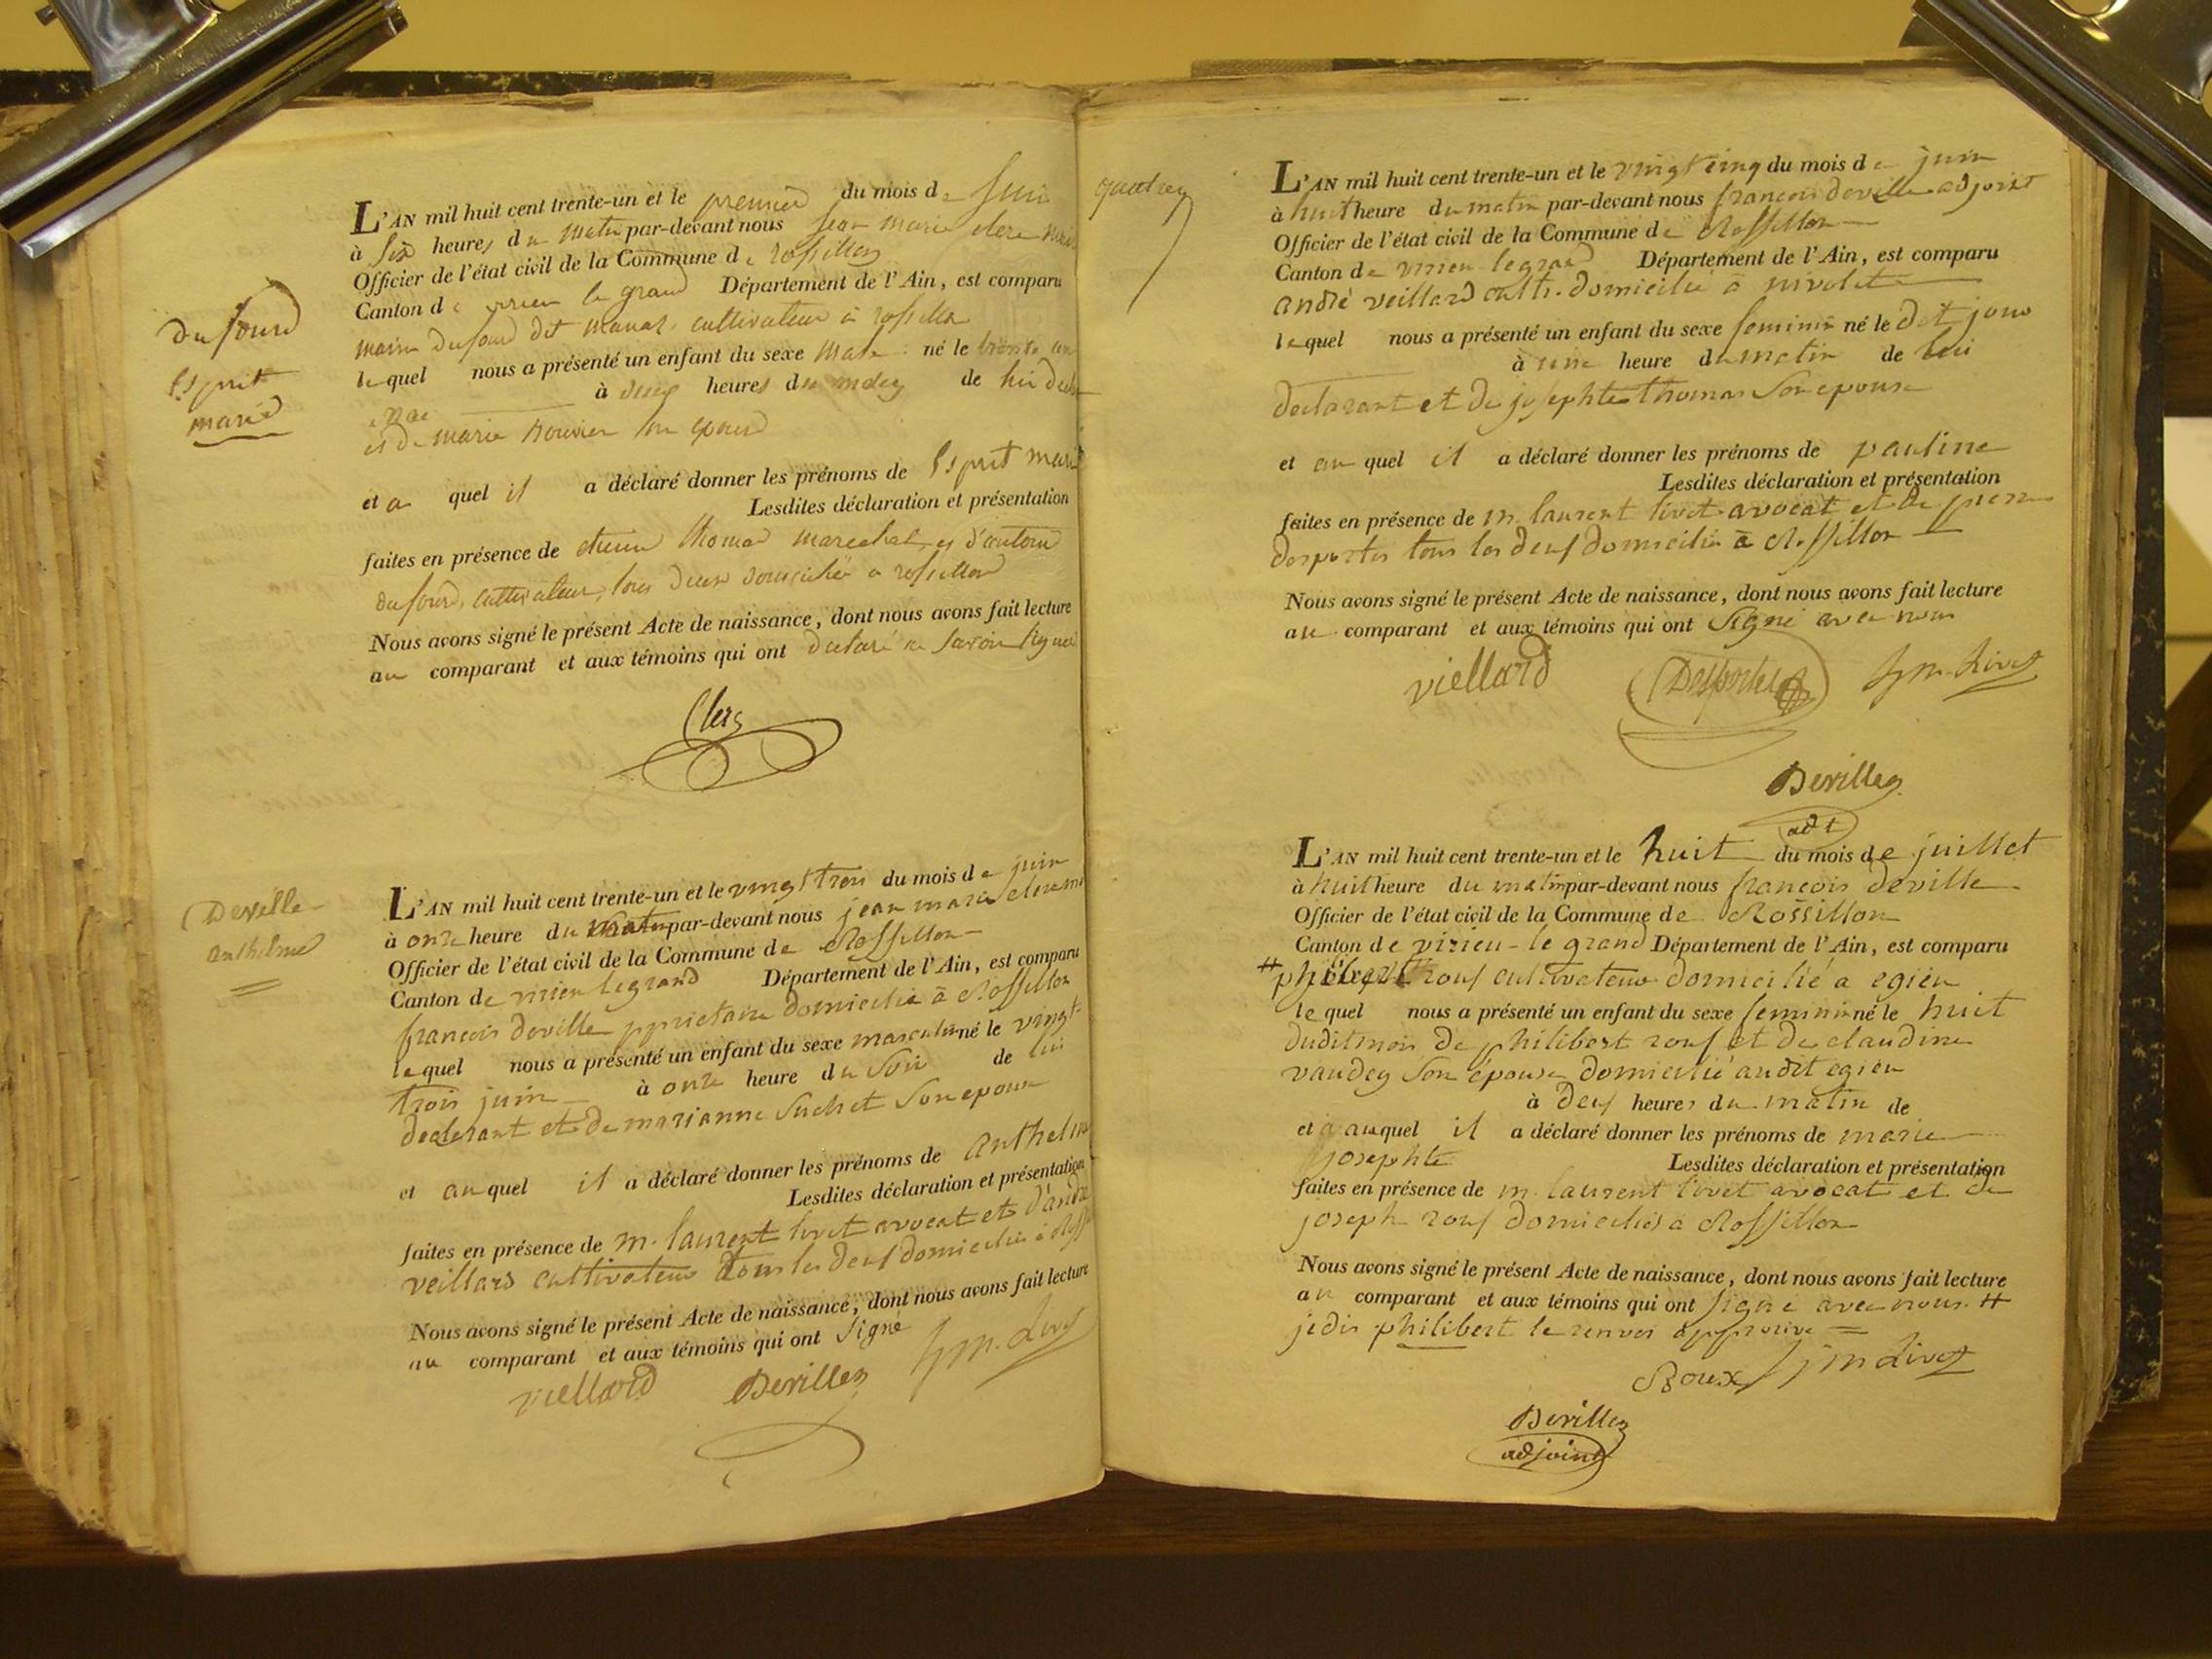 du fourd
Esprit
marie
L'AN mil huit cent trente-un et le premier du mois de Juin
à Six heures du matin par-devant nous jean marie clerc maire
Officier de l'état civil de la Commune de rossillon
Canton de virieu le grand Département de l'Ain, est comparu
dufourd dit cultivateur à rossillon
lequel nous a présenté un enfant du sexe masle né le trente un
mai à deux heures du de lui déclarant
et de marie son épouse
et au quel il a déclaré donner les prénoms de Esprit marie
Lesdites déclaration et présentation
faites en présence de etienne thomas marechal et d'antoine
dufourd, cultivateur, tous deux domiciliés a rossillon
Nous avons signé le présent Acte de naissance, dont nous avons fait lecture
au comparant et aux témoins qui ont declaré ne savoir signer
Clerc
Deville
anthelme
L'AN mil huit cent trente-un et le vingt trois du mois de juin
à onze heure du matin par-devant nous jean marie clerc
Officier de l'état civil de la Commune de Rossillon
Canton de virieu legrand Département de l'Ain, est comparu
francois deville ppriétaire domicilié à Rossillon
lequel nous a présenté un enfant du sexe masculin né le vingt
trois juin à onze heure du soir de lui
declarant et de marianne Suchet Son epouse
et auquel il a déclaré donner les prénoms de anthelme
Lesdites déclaration et présentation
faites en présence de m. laurent livet avocat et d'andré
veillard cultivateur tous les deux domiciliés à
Nous avons signé le présent Acte de naissance, dont nous avons fait lecture
au comparant et aux témoins qui ont Signé
viellard Deville
L'AN mil huit cent trente-un et le vingt cinq du mois de juin
à huit heure du matin par-devant nous francois deville adjoint
Officier de l'état civil de la Commune de Rossillon
Canton de virieu-legrand Département de l'Ain, est comparu
andré veillard cultr. domicilié à nivolet
lequel nous a présenté un enfant du sexe feminin né le dit jour
à une heure du matin de lui
declarant et de josephte thomas Son epouse
et au quel il a déclaré donner les prénoms de pauline
Lesdites déclaration et présentation
faites en présence de m. laurent livet avocat et de pierre
desportes tous les deux domicilié à Rossillon
Nous avons signé le présent Acte de naissance, dont nous avons fait lecture
au comparant et aux témoins qui ont Signé avec nous
viellard Desportes
Deville
adt
L'AN mil huit cent trente-un et le huit du mois de juillet
à huit heure du matin par-devant nous françois deville
Officier de l'état civil de la Commune de Rossillon
Canton de virieu-le grand Département de l'Ain, est comparu
philibert roux cultivateur domicilié a egieu
lequel nous a présenté un enfant du sexe feminin né le huit
duditmois de philibert roux et de claudine
vaudey Son épouse domicilié audit egieu
à deux heures du matin de
et a auquel il a déclaré donner les prénoms de marie
josephte Lesdites déclaration et présentation
faites en présence de m. laurent livet avocat et de
joseph roux domiciliés à Rossillon
Nous avons signé le présent Acte de naissance, dont nous avons fait lecture
au comparant et aux témoins qui ont signé avec nous. #
jedis philibert le renvoi approuvé =
Roux j m Livet
Deville
adjoint